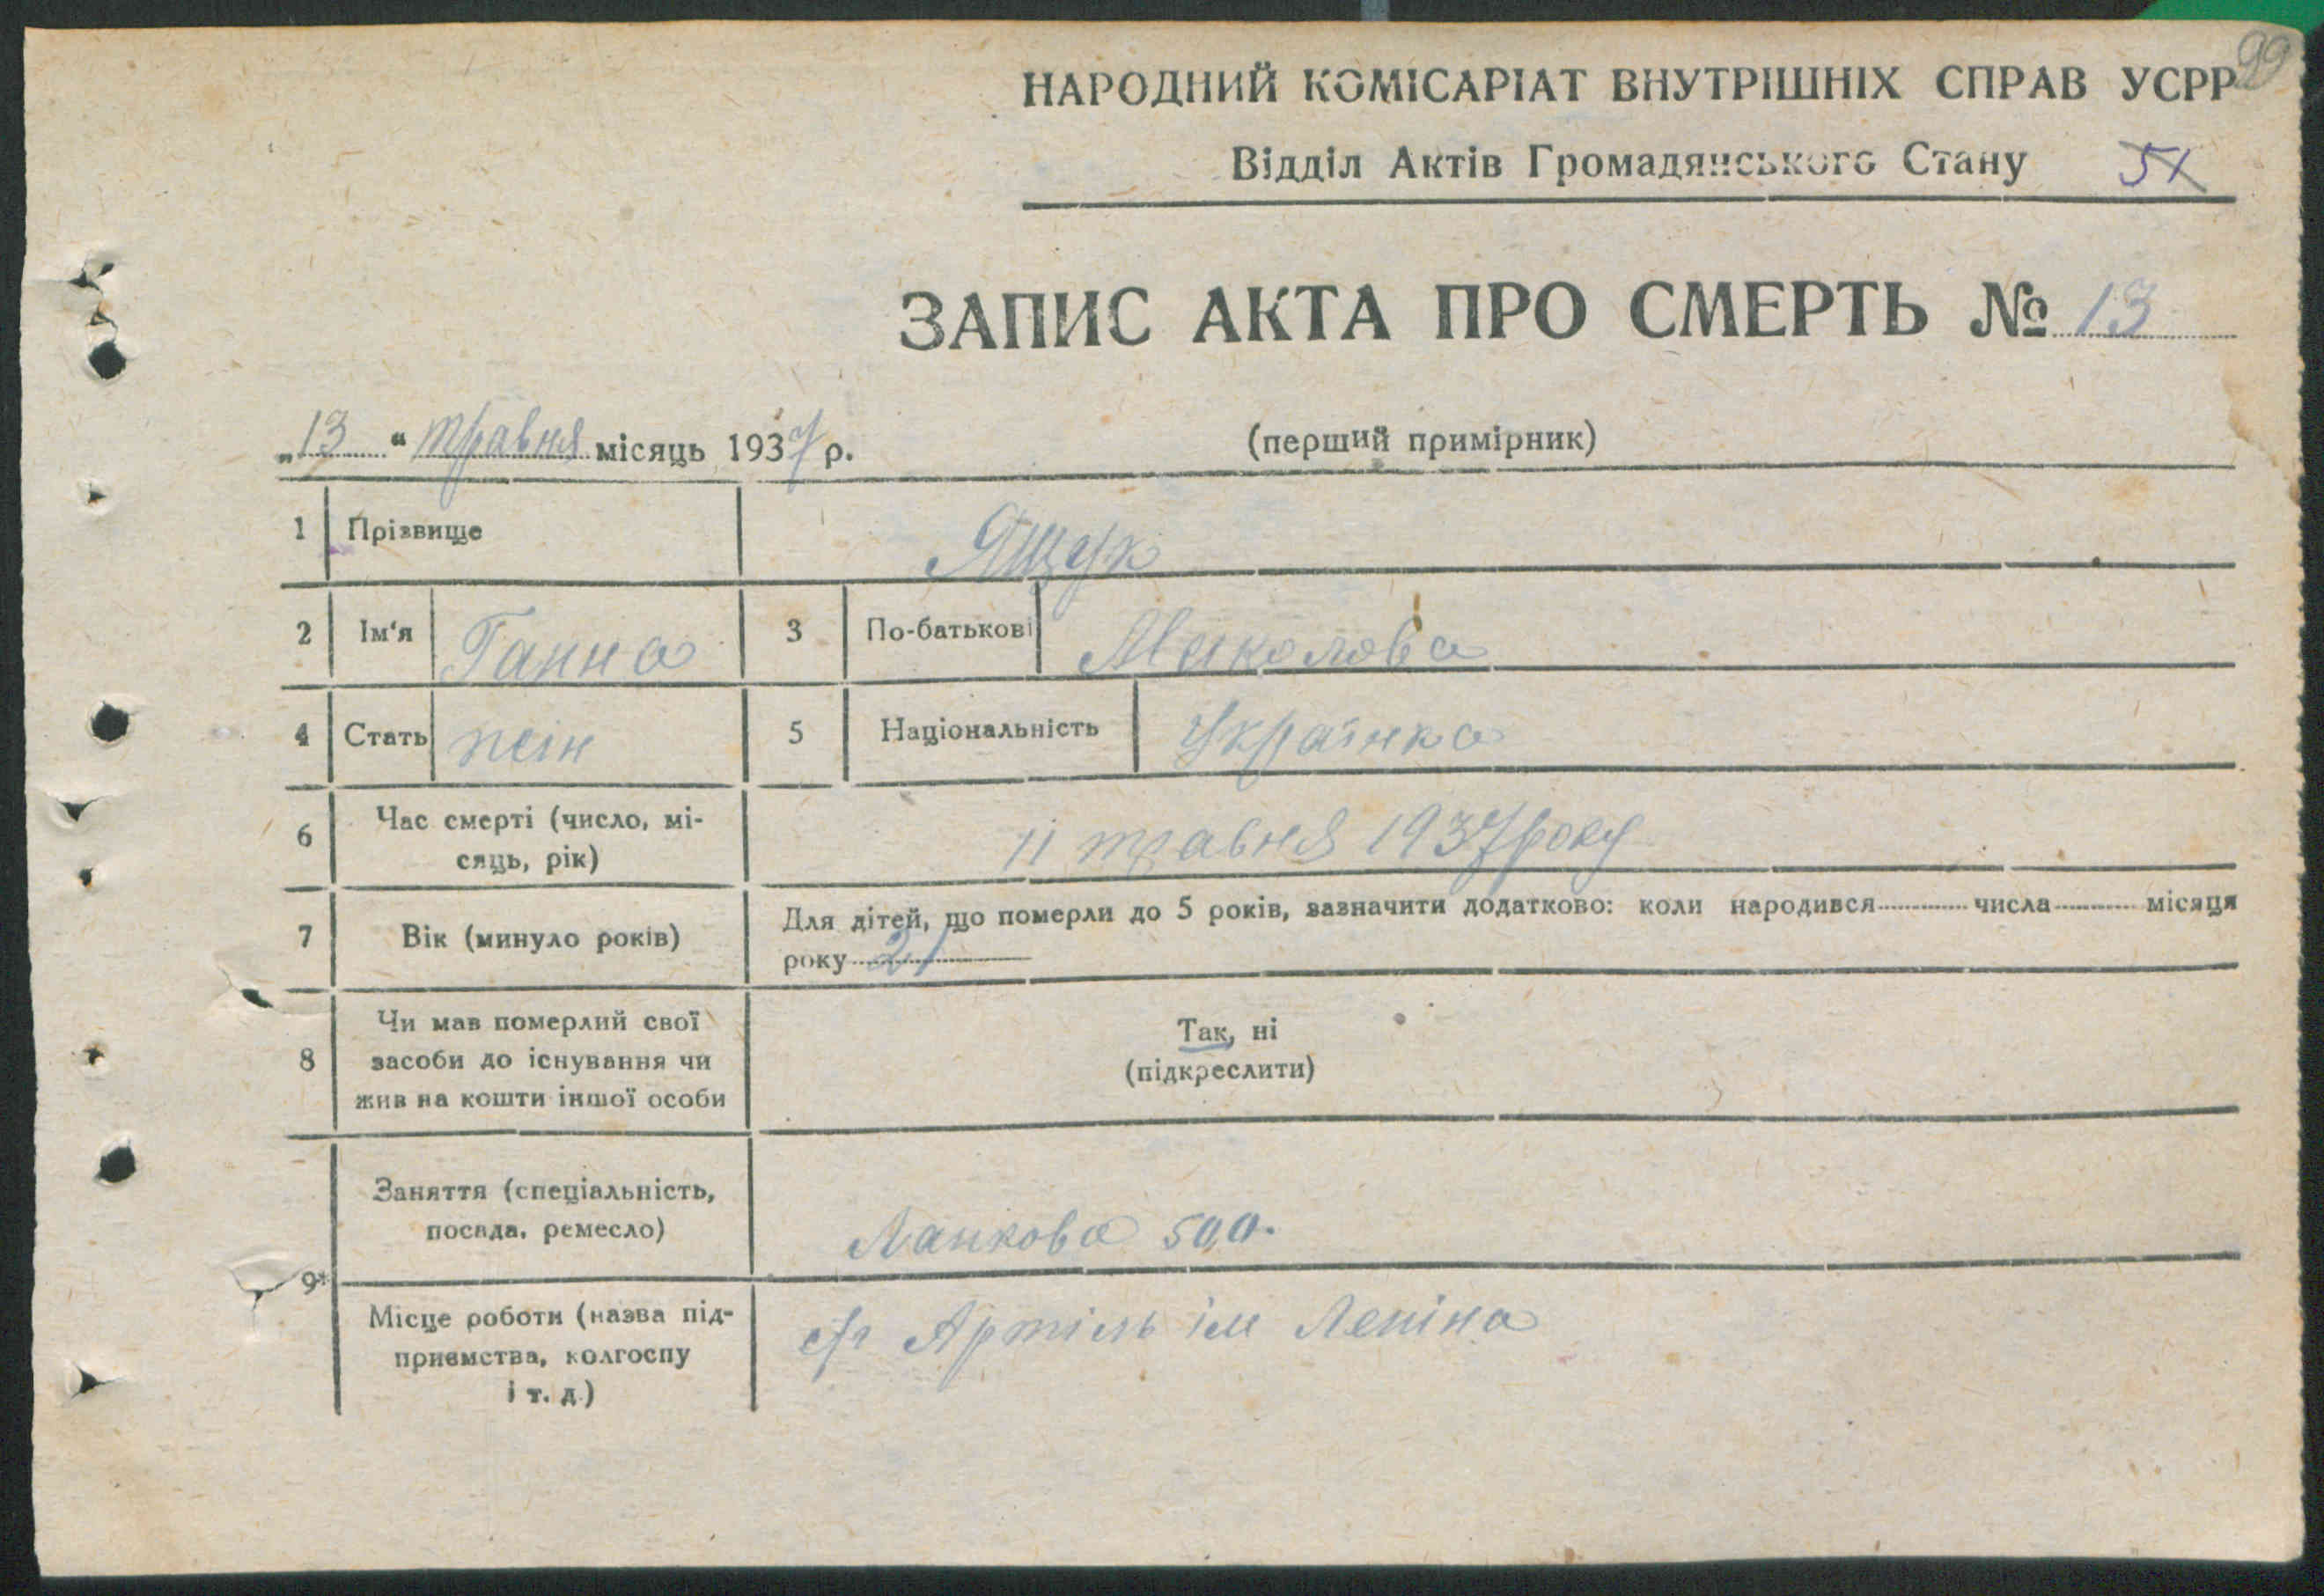 99
НАРОДНИЙ КОМІСАРІАТ ВНУТРІШНІХ СПРАВ УСРР
Відділ Актів Громадянського Стану 51
ЗАПИС АКТА ПРО СМЕРТЬ № 13
„13“ травня місяць 1937 р. (перший примірник)
1 Прізвище Ящук
2 Ім‘я Ганна 3 По-батькові Миколова
4 Стать жін 5 Національність Українка
6 Час смерті (число, мі-
сяць, рік) 11 травня 1937 року
7 Вік (минуло років) Для дітей, що померли до 5 років, зазначити додатково: коли народився числа місяця
року 21
8 Чи мав померлий свої
засоби до існування чи
жив на кошти іншої особи
Так, ні
(підкреслити)
9* Заняття (спеціальність,
посада, ремесло) Ланкова 500.
Місце роботи (назва під-
приємства, колгоспу
і т. д.) с/г Артіль ім Леніна